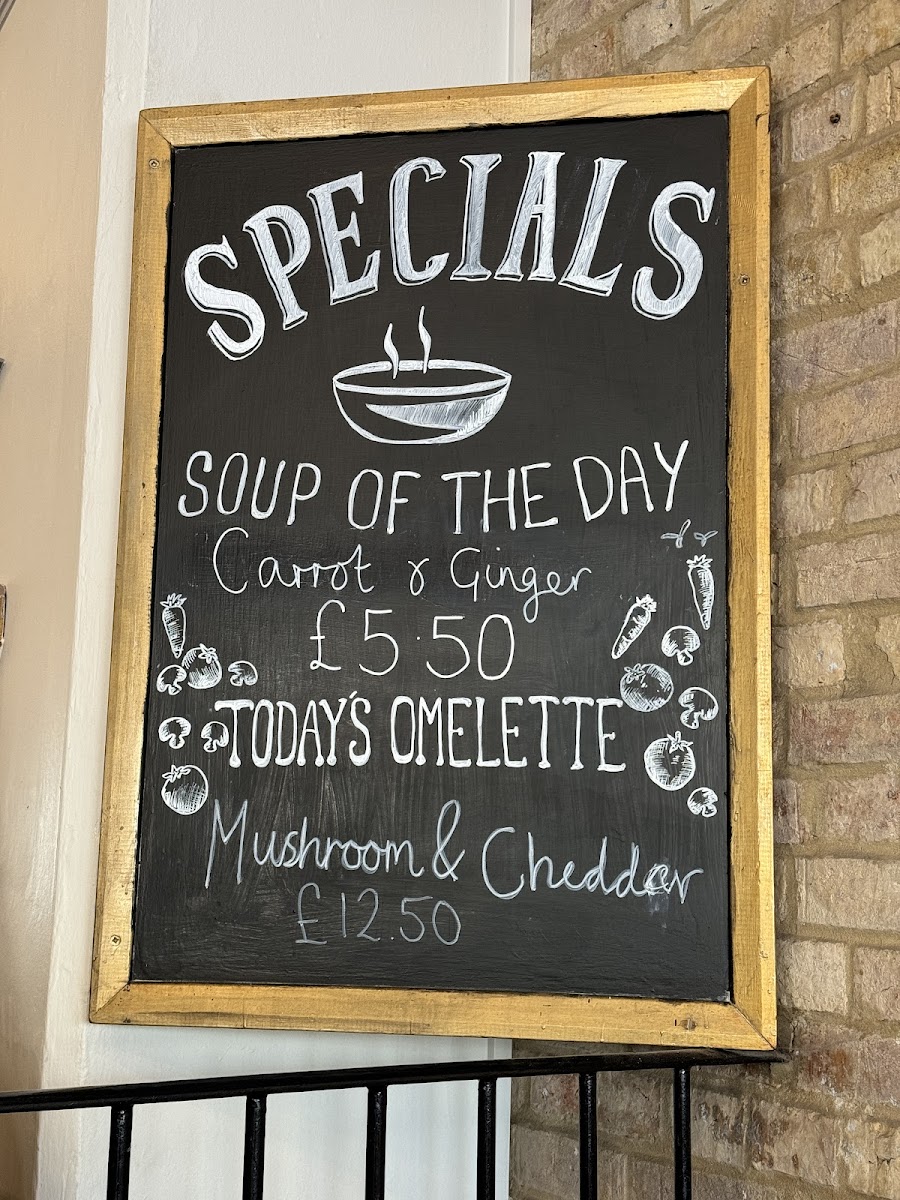 SPECIALS
SOUP OF THE DAY
Carrot & Ginger
£5.50
TODAY'S OMELETTE
Mushroom & Cheddar
£12.50